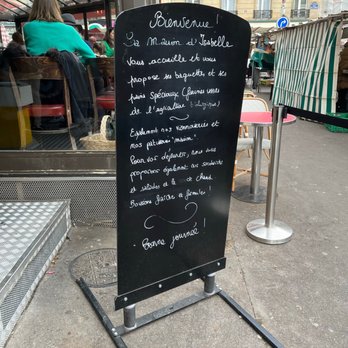 Bienvenue !
La Maison d'Isabelle
vous accueille et vous
propose ses baguettes et ses
pains spéciaux (farines issues
de l'agriculture biologique)
Egalement nos viennoiseries et
nos pâtisseries "maison".
Pour vos déjeuners, nous vous
proposons également des sandwichs
et salades à chaud.
Boissons froides et formules !
Bonne journée !